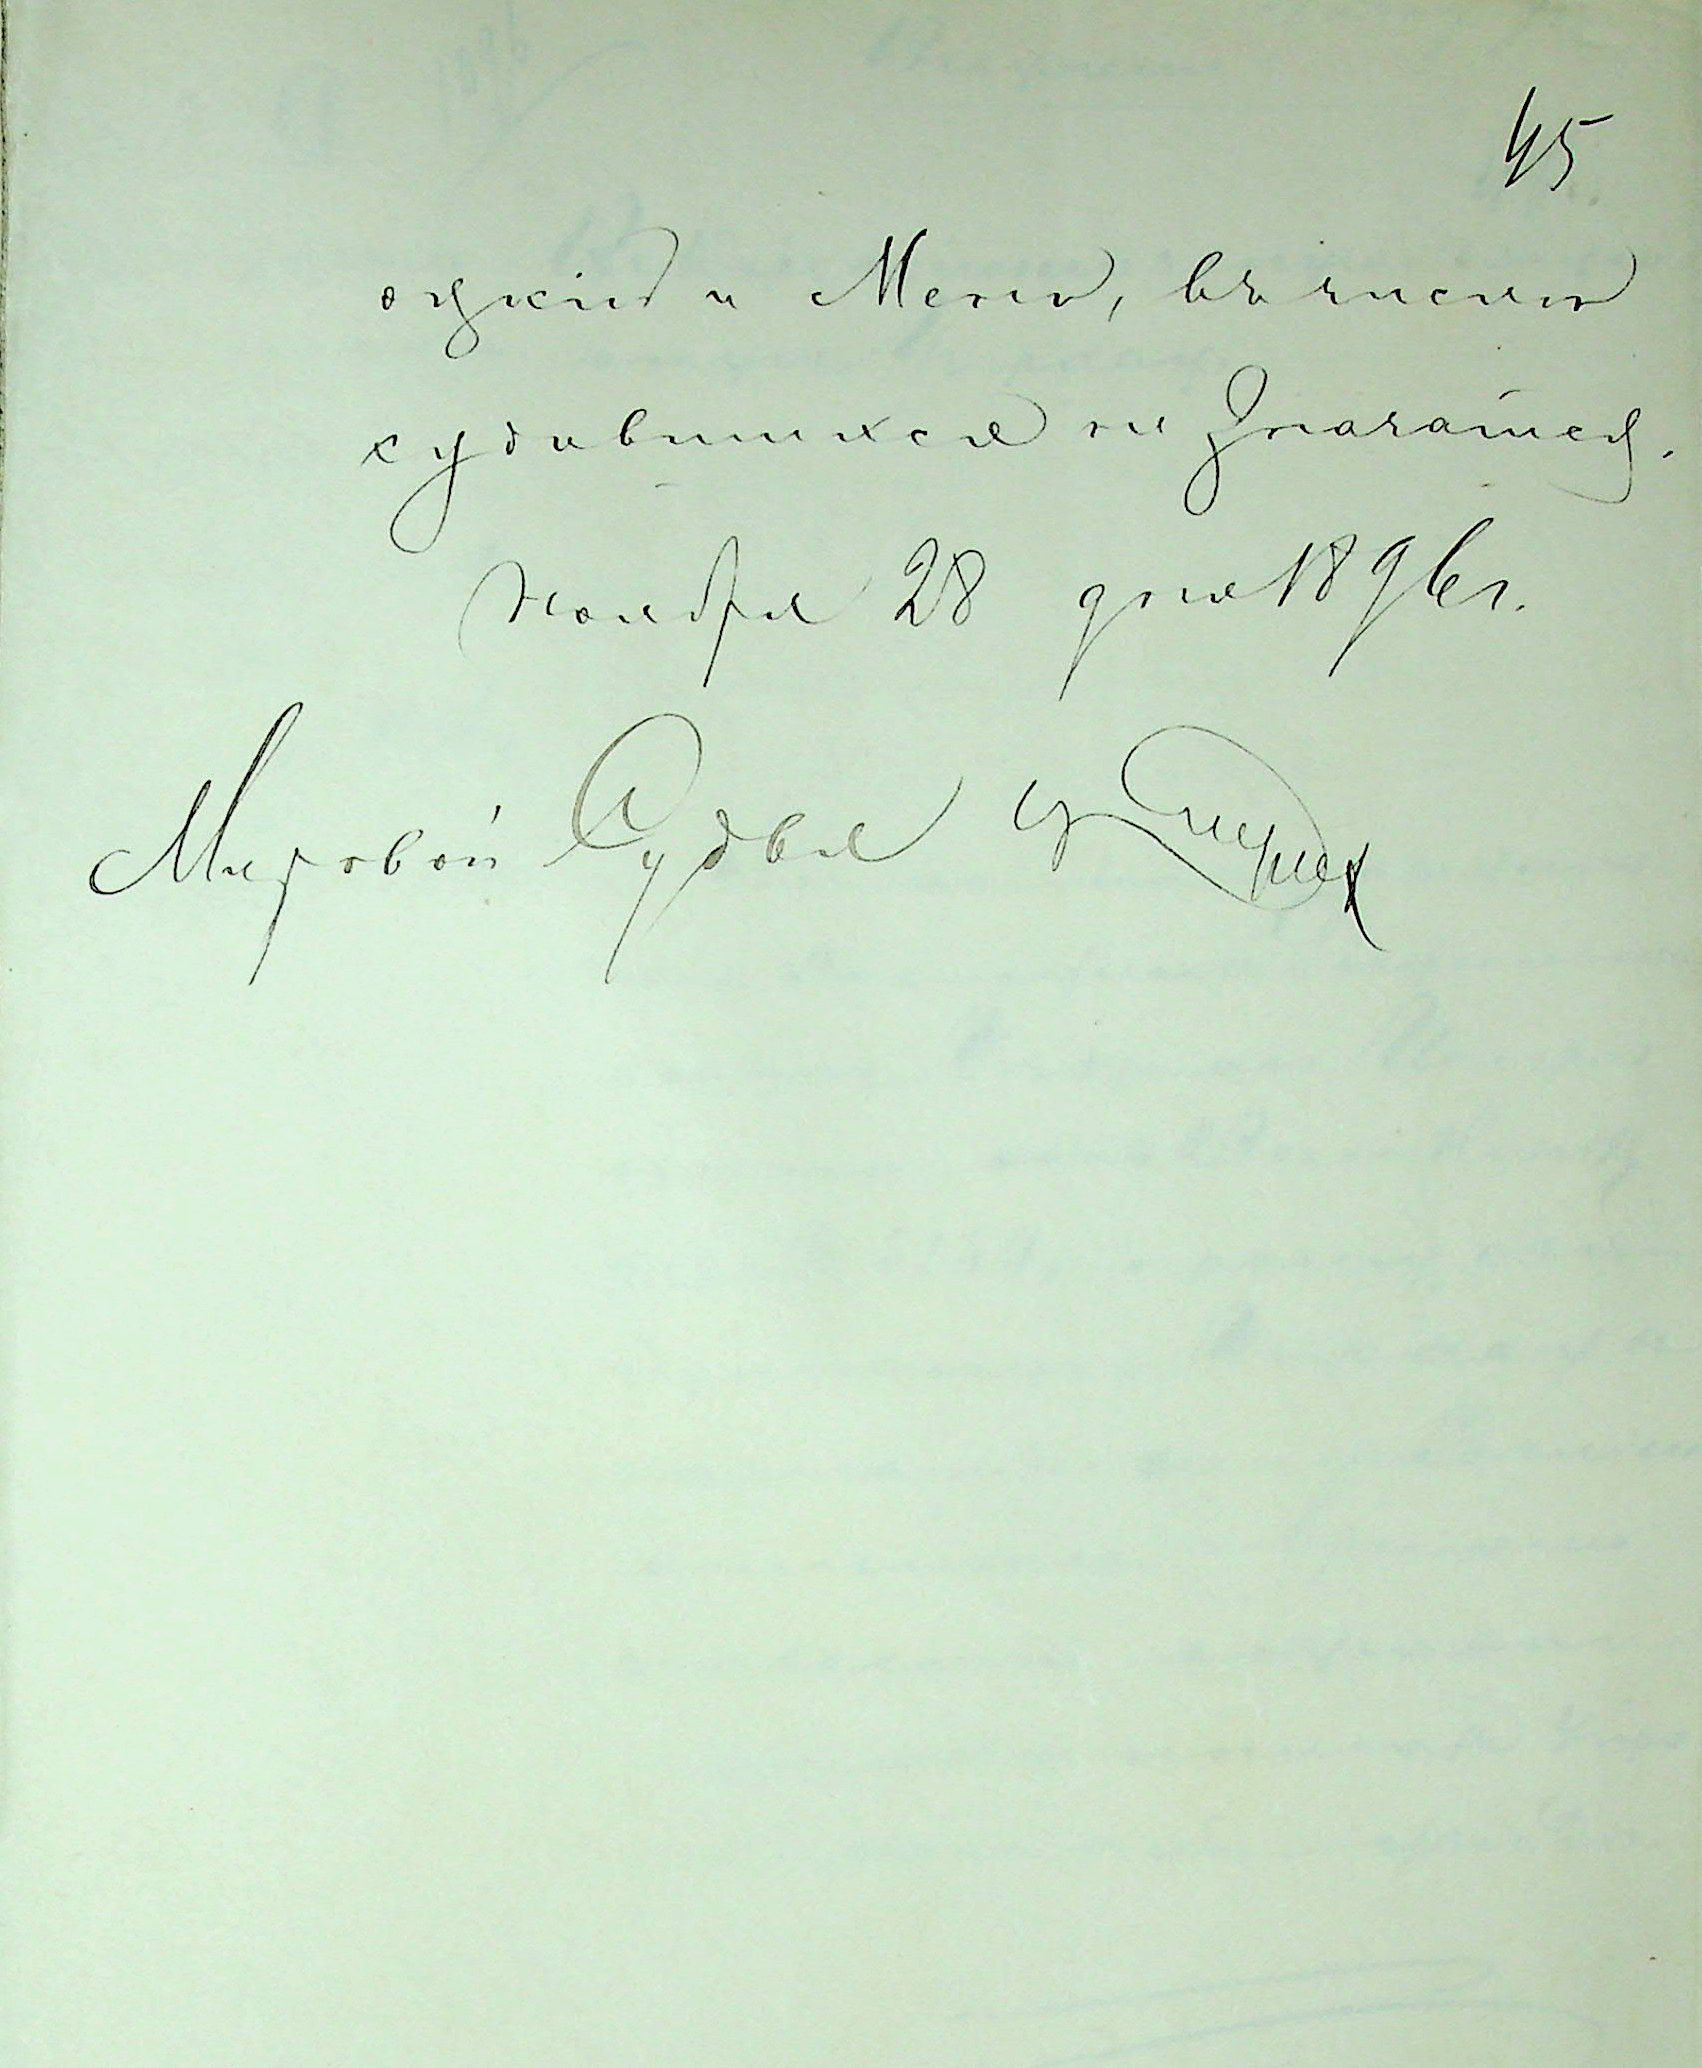 45
оцкій и Мень, въ числѣ
судившихся не значатся.
Ноября 28 дня 1896 г.
Мировой Судья